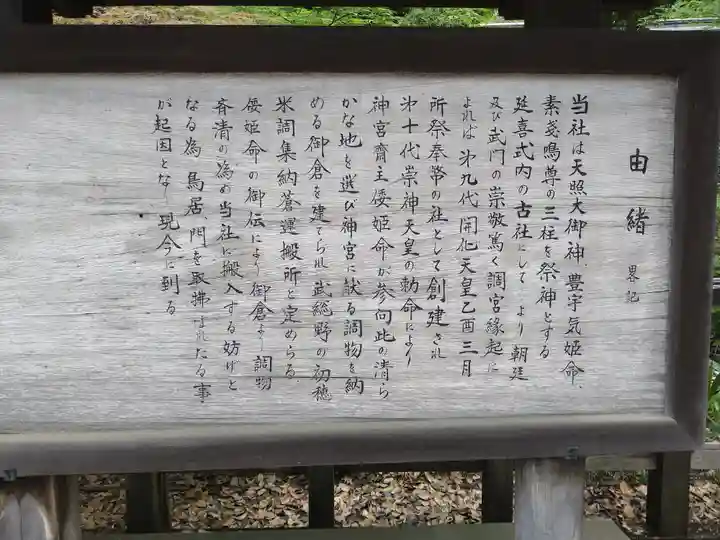 由緒 畧記
当社は天照大御神、豊宇気姫命、
素戔嗚尊の三柱を祭神とする
延喜式内の古社にして より朝廷
及び武門の崇敬篤く調宮縁起に
よれば 㐧九代開化天皇乙酉三月
所祭奉幣の社として創建され
㐧十代崇神天皇の勅命により
神宮斎主倭姫命が参向此の清ら
かな地を選び神宮に献る調物を納
める御倉を建てられ武総野の初穂
米調集納蒼運搬所と定めらる
倭姫命の御伝により御倉より調物
斉清の為め当社に搬入する妨げと
なる為、鳥居、門を取拂はれたる事
が起因となり現今に到る